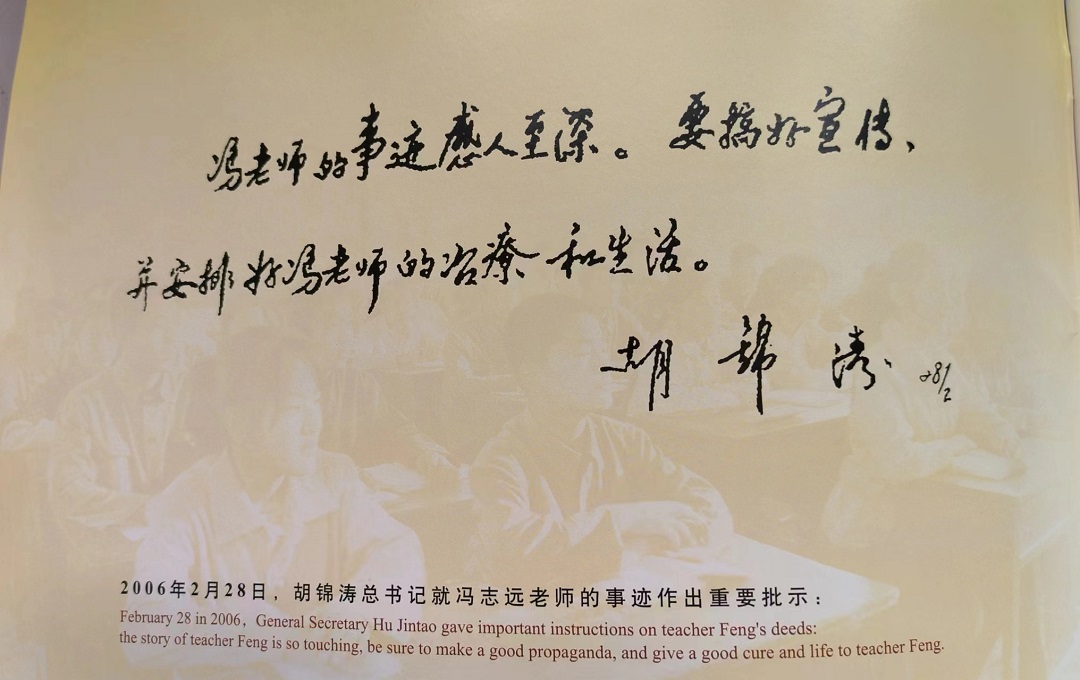 冯老师的事迹感人至深。要搞好宣传、
并安排好冯老师的治療和生活。
胡锦涛 28/2
2006年2月28日，胡锦涛总书记就冯志远老师的事迹作出重要批示：
February 28 in 2006，General Secretary Hu Jintao gave important instructions on teacher Feng's deeds:
the story of teacher Feng is so touching, be sure to make a good propaganda, and give a good cure and life to teacher Feng.